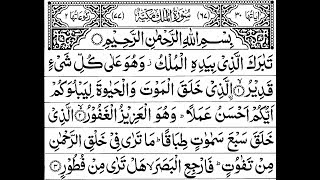 اٰیاتها ٣٠ (٦٧) سُوْرَةُ الْمُلْكِ مَكِّیَّةٌ (٧٧) رکوعاتها ٢
بِسْمِ اللّٰهِ الرَّحْمٰنِ الرَّحِیْمِ
تَبٰرَكَ الَّذِیْ بِیَدِهِ الْمُلْكُ ؗ وَهُوَ عَلٰی كُلِّ شَیْءٍ
قَدِیْرُ ۙ﴿١﴾ اۨلَّذِیْ خَلَقَ الْمَوْتَ وَالْحَیٰوةَ لِیَبْلُوَكُمْ
اَیُّكُمْ اَحْسَنُ عَمَلًا ؕ وَهُوَ الْعَزِیْزُ الْغَفُوْرُ ۙ﴿٢﴾ الَّذِیْ
خَلَقَ سَبْعَ سَمٰوٰتٍ طِبَاقًا ؕ مَا تَرٰی فِیْ خَلْقِ الرَّحْمٰنِ
مِنْ تَفٰوُتٍ ؕ فَارْجِعِ الْبَصَرَ ۙ هَلْ تَرٰی مِنْ فُطُوْرٍ ﴿٣﴾